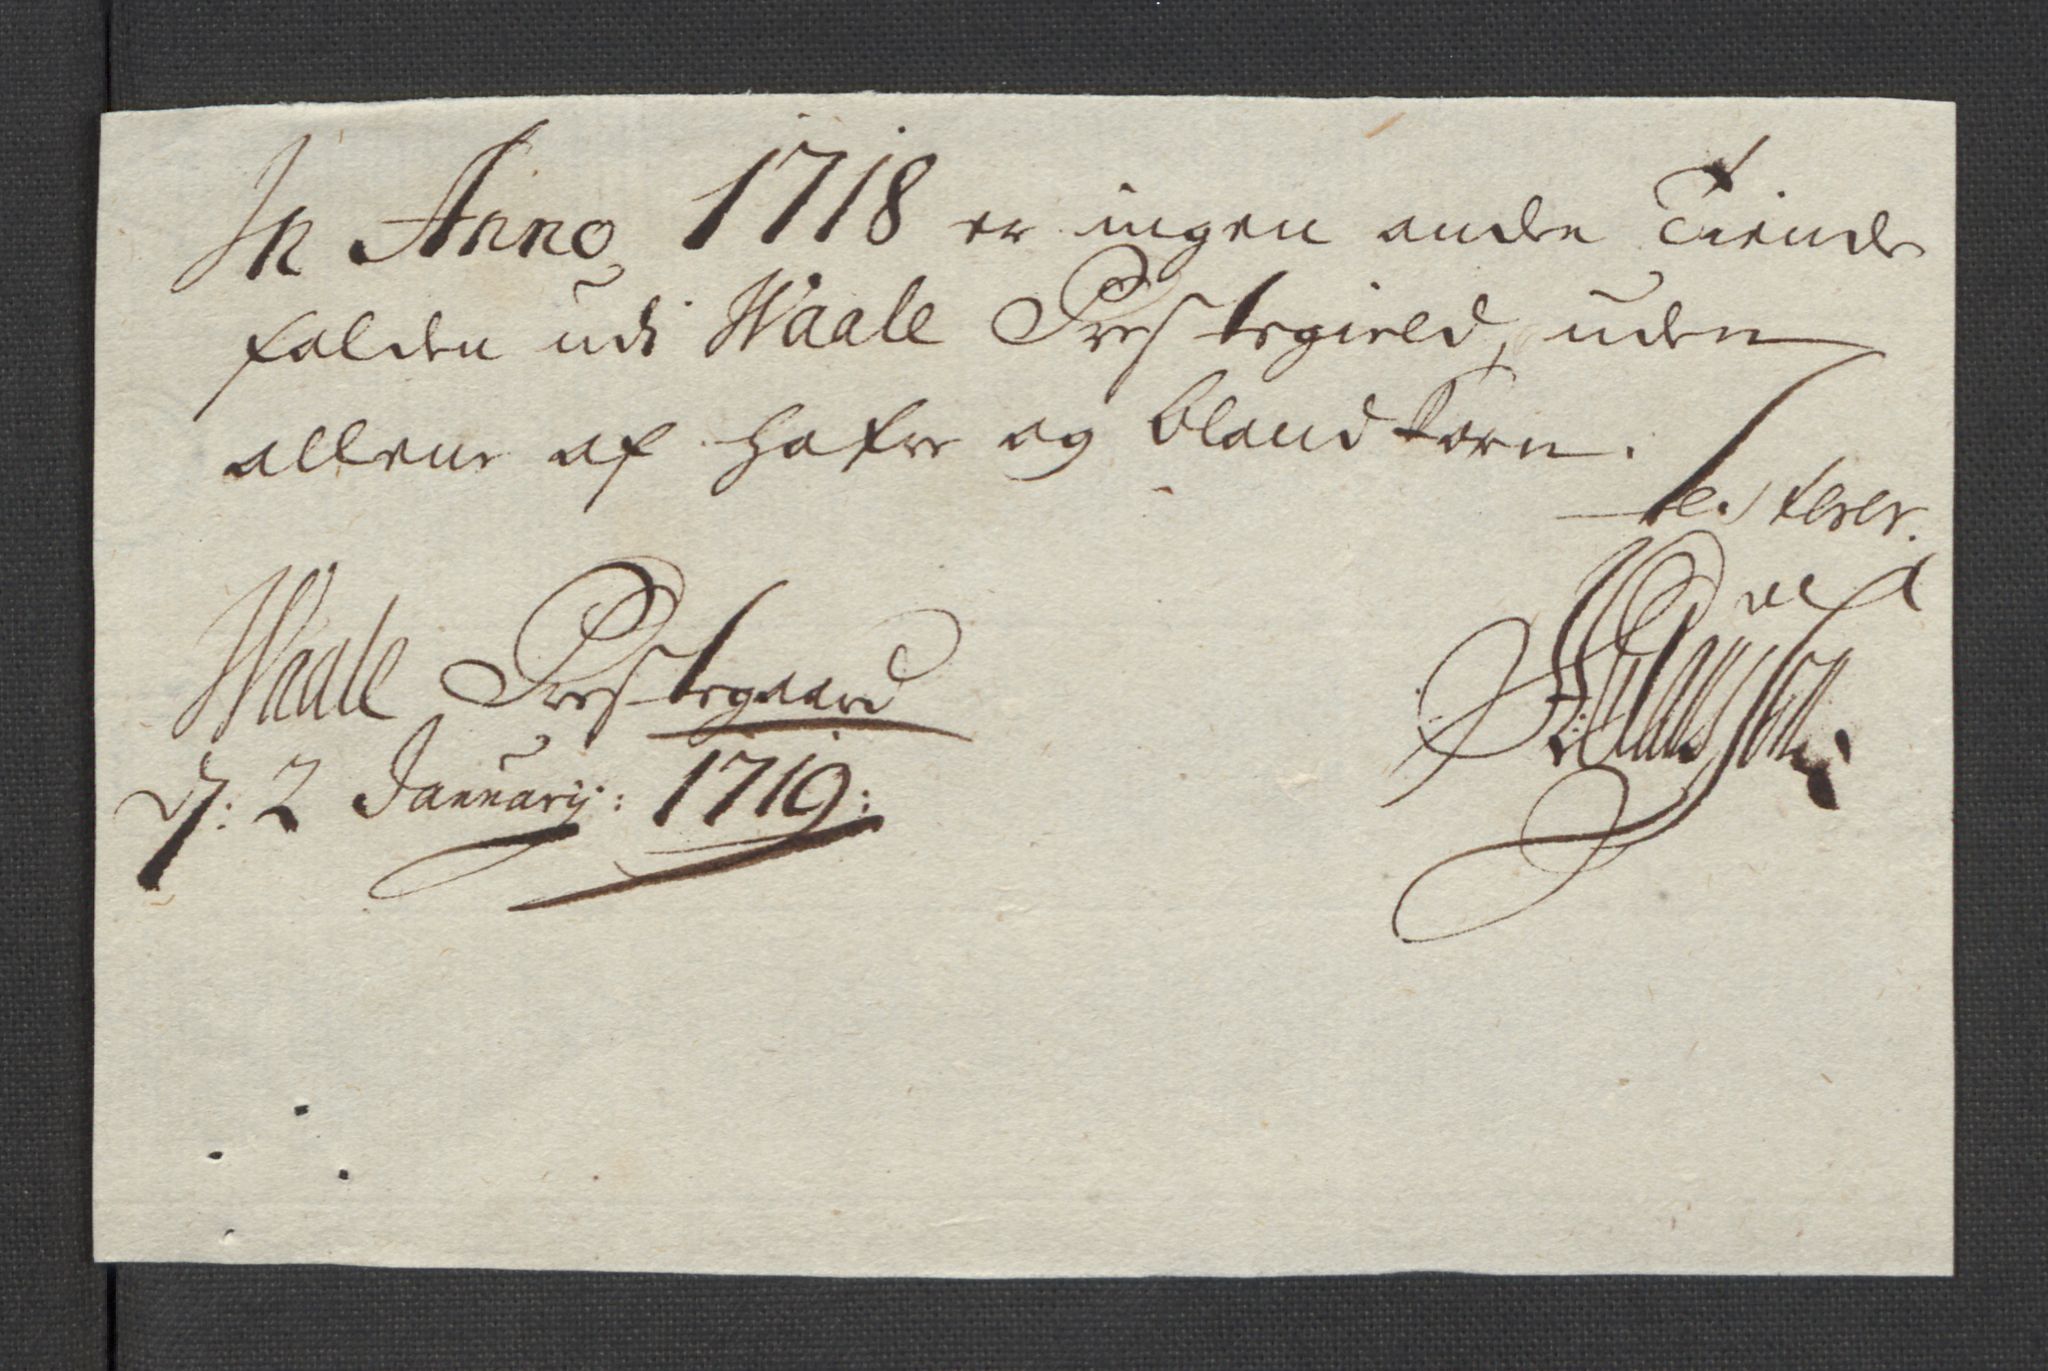 In Anno 1718 er ingen anden Tiende
falden udi Waale Prestegield, uden
allene af Hafre og blandkorn.
testerer
Waale Prestegaard
d: 2 Januarij: 1719: